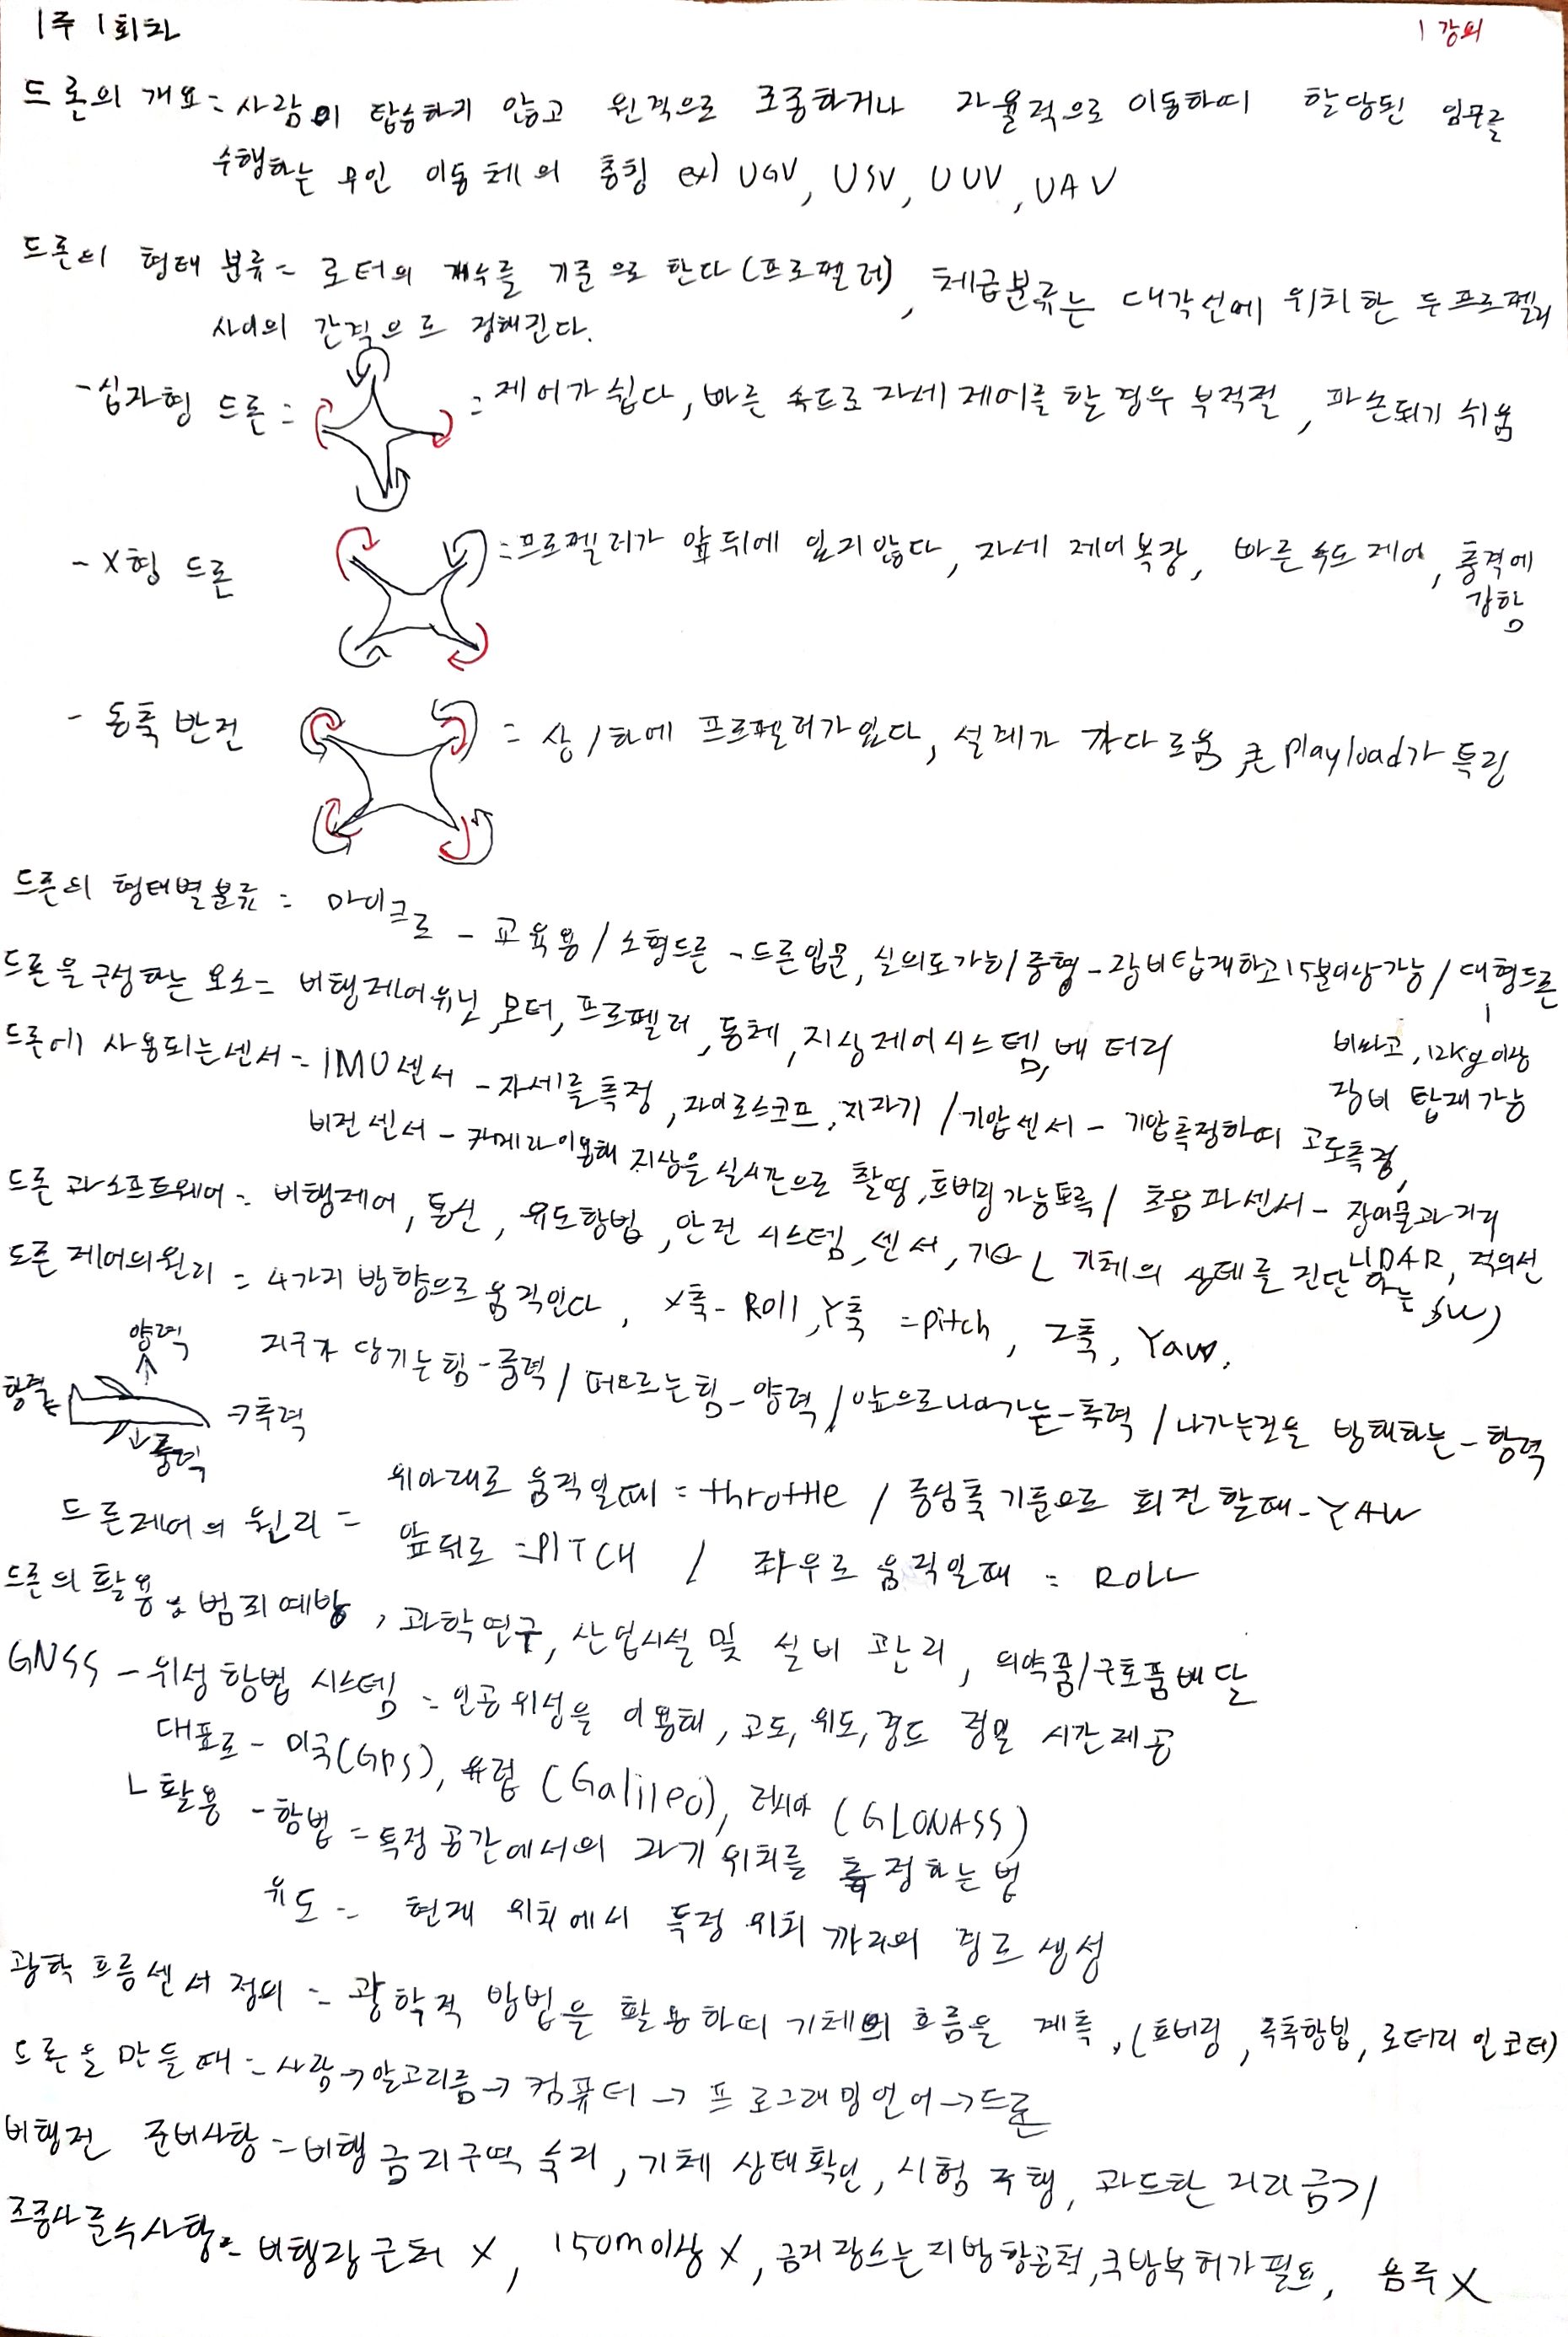 1주 1회차
1강의
드론의 개요 = 사람이 탑승하지 않고 원격으로 조종하거나 자율적으로 이동하며 할당된 임무를
수행하는 무인 이동체의 총칭 ex) UGV, USV, UUV, UAV
드론의 형태 분류 = 로터의 개수를 기준으로 한다(프로펠러), 체급분류는 대각선에 위치한 두 프로펠러
사이의 간격으로 정해진다.
- 십자형 드론 = = 제어가 쉽다, 빠른 속도로 자세 제어를 할 경우 부적절, 파손되기 쉬움
- X형 드론 = 프로펠러가 앞뒤에 있지 않다, 자세 제어 복잡, 빠른 속도 제어, 충격에
강함
- 동축 반전 = 상/하에 프로펠러가 있다, 설계가 까다로움, 큰 Playload가 특징
드론의 형태별 분류 = 마이크로 - 교육용 / 소형드론 - 드론입문, 실외도가능 / 중형 - 장비탑재하고 15분이상가능 / 대형드론
비싸고, 12kg 이상
장비 탑재 가능
드론을 구성하는 요소 = 비행제어유닛, 모터, 프로펠러, 동체, 지상제어시스템, 배터리
드론에 사용되는 센서 = IMU센서 - 자세를 측정, 자이로스코프, 지자기 / 기압센서 - 기압측정하여 고도측정,
비전센서 - 카메라이용해 지상을 실시간으로 촬영, 호버링 가능토록 / 초음파센서 - 장애물과 거리
LiDAR, 적외선
드론과 소프트웨어 = 비행제어, 통신, 유도항법, 안전 시스템, 센서, 기타 ( 기체의 상태를 진단하는 SW)
드론 제어의 원리 = 4가지 방향으로 움직인다, X축 - Roll, Y축 = pitch, Z축, Yaw.
지구가 당기는 힘 - 중력 / 떠오르는 힘 - 양력 / 앞으로 나아가는 - 추력 / 나가는것을 방해하는 - 항력
양력
항력
추력
중력
드론제어의 원리 = 위아래로 움직일때 = throttle / 중심축 기준으로 회전할때 - YAW
앞뒤로 = PITCH / 좌우로 움직일때 = ROLL
드론의 활용 = 범죄예방, 과학연구, 산업시설 및 설비 관리, 의약품/구호품배달
GNSS - 위성항법 시스템 = 인공위성을 이용해, 고도, 위도, 경도 정밀 시간제공
대표로 - 미국(GPS), 유럽 (Galileo), 러시아 (GLONASS)
ㄴ활용 - 항법 = 특정 공간에서의 자기 위치를 측정하는 법
유도 = 현재 위치에서 특정 위치까지의 경로 생성
광학 흐름센서 정의 = 광학적 방법을 활용하여 기체의 흐름을 계측, (호버링, 측측항법, 로터리 인코더)
드론을 만들 때 = 사람→알고리즘→컴퓨터→프로그래밍언어→드론
비행전 준비사항 = 비행 금지구역 숙지, 기체 상태확인, 시험 주행, 과도한 거리금지
조종사 준수사항 = 비행장 근처 X, 150m이상 X, 금지 장소는 지방항공청, 국방부 허가필요, 음주 X